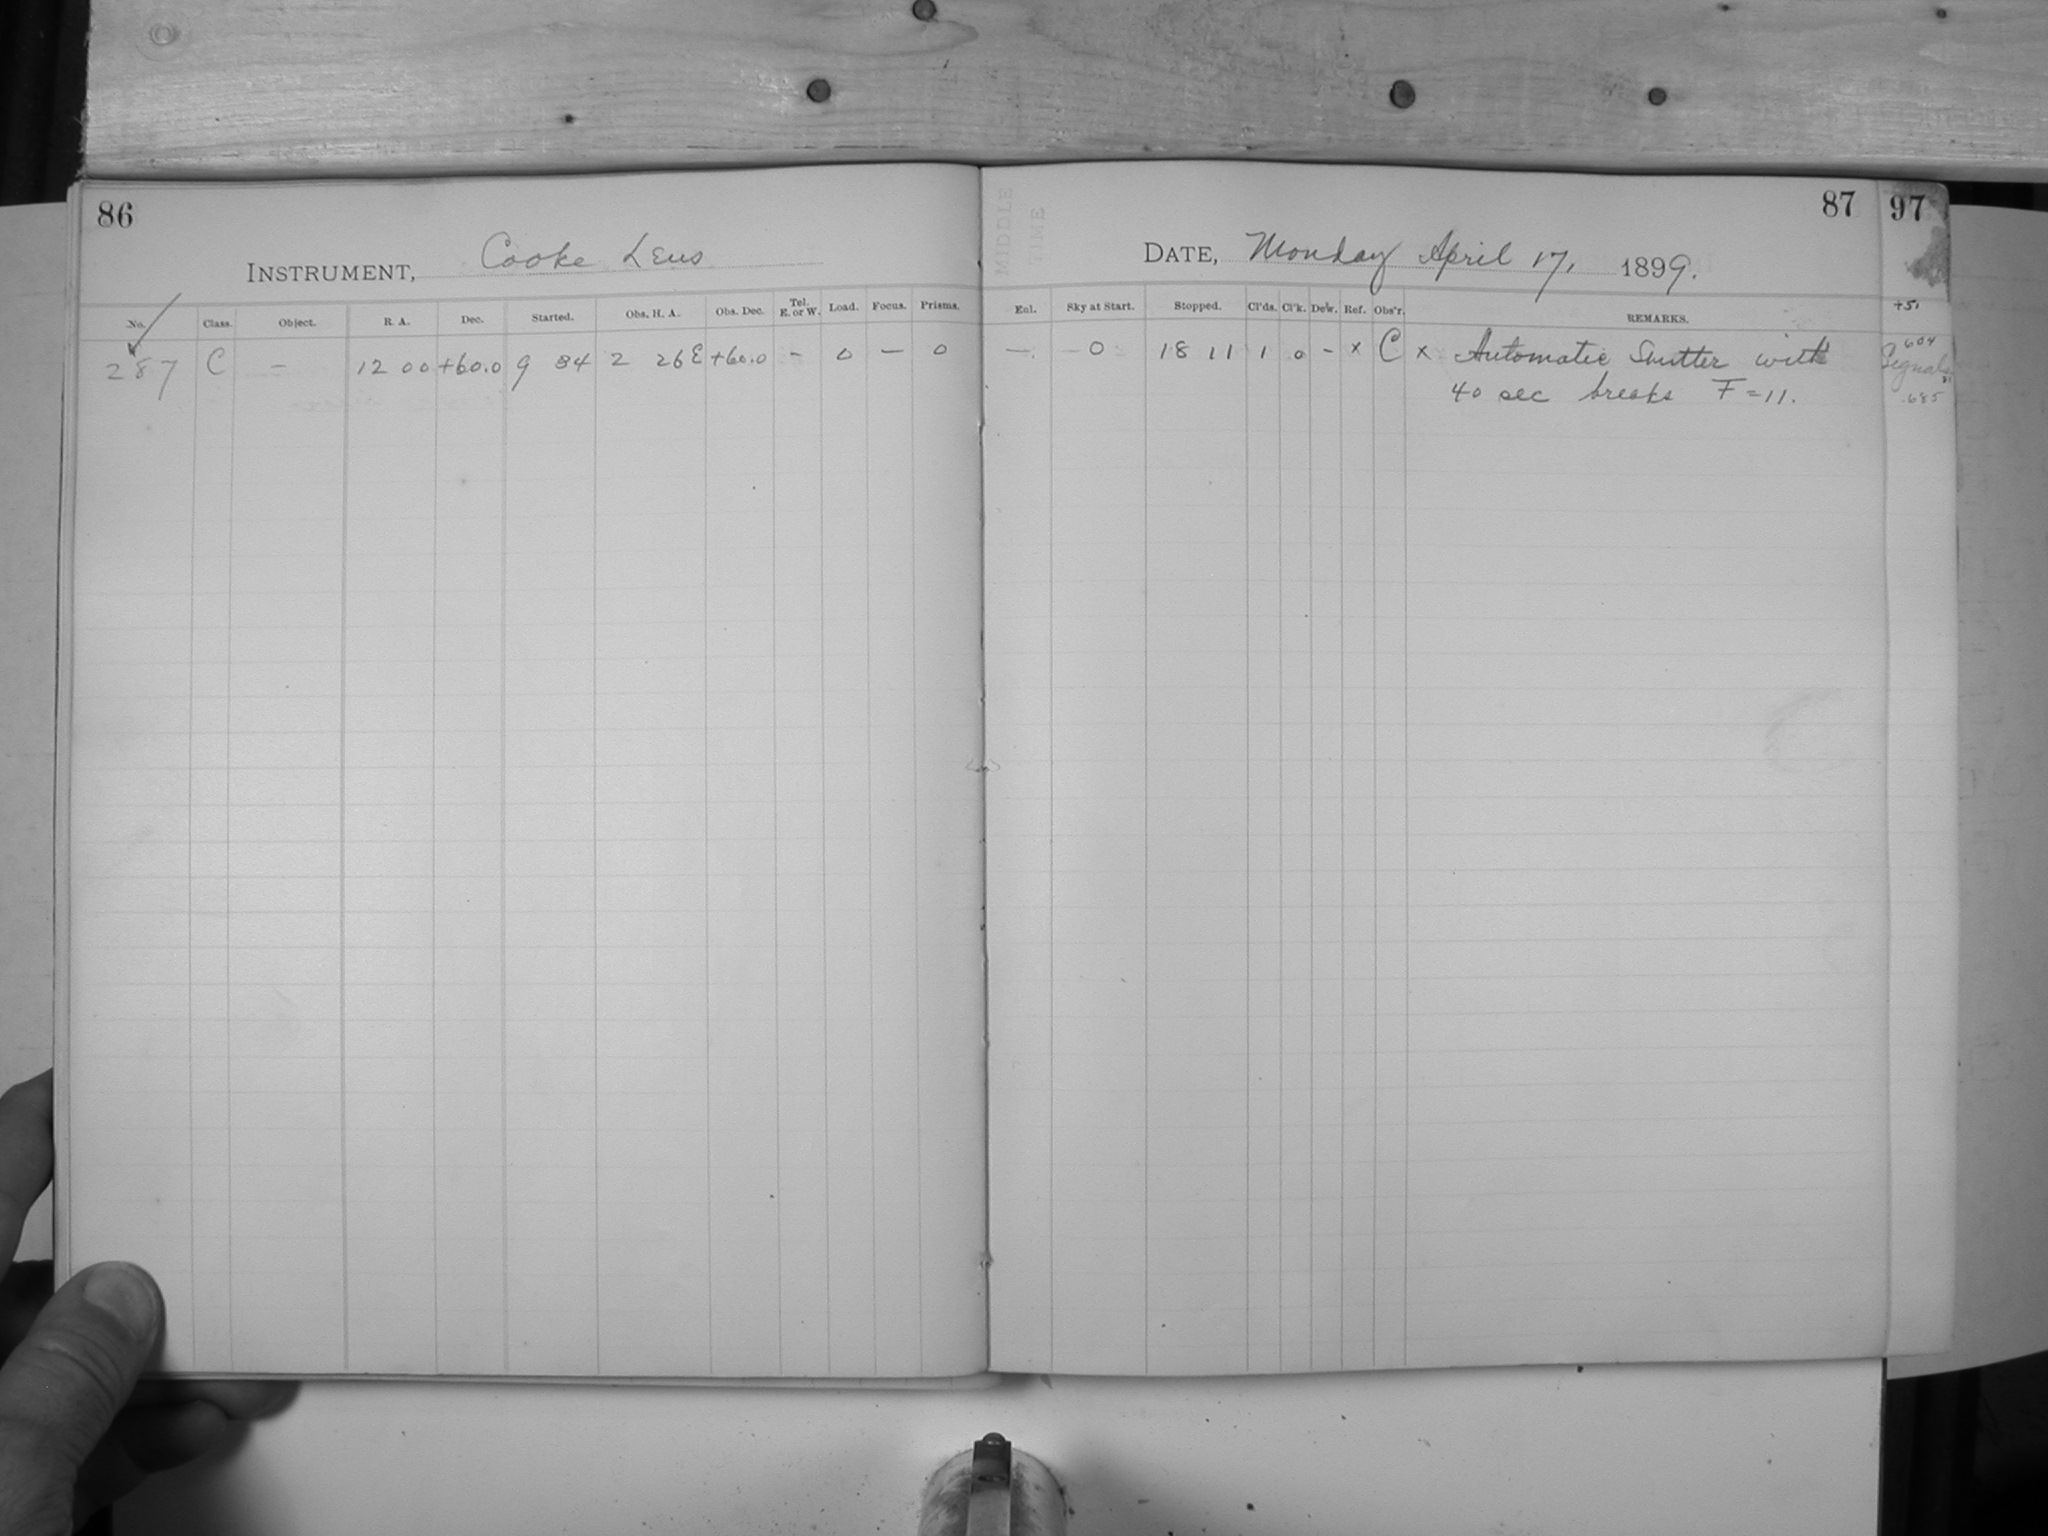 86
INSTRUMENT, Cooke Lens
No. Class. Object. R. A. Dec. Started. Obs. H. A. Obs. Dec. Tel. E. or W. Load. Focus. Prisms.
287 C – 12 00 +60.0 9 34 2 26 E +60.0 – 0 – 0
MIDDLE
TIME
87
DATE, Monday April 17, 1899.
Eul. Sky at Start. Stopped. Cl'ds. Cl'k. Dew. Ref. Obs'r. REMARKS.
–. 0 18 11 1 0 – x C x Automatic Shutter with
40 sec breaks F = 11.
97
+51
604
Signals
.685